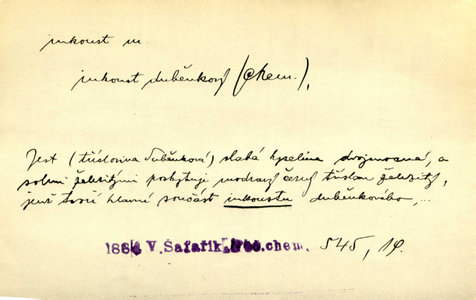 inkoust m.
inkoust duběnkový (chem.),
Jest (tříslovina duběnková) slabá kyselina dvojmocná, a
solmi železitými poskytuje modravý černý tříslan železitý,
jenž tvoří hlavní součást inkoustu duběnkového,...
V. Šafařík, chem. 545, 19.